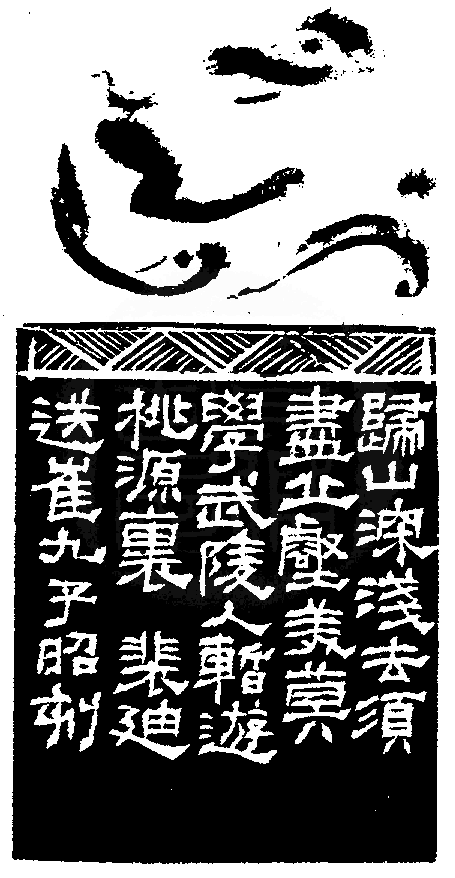 歸山深淺去須
盡丘壑美莫
學武陵人暫遊
桃源裏　裴迪
送崔九子昭刻